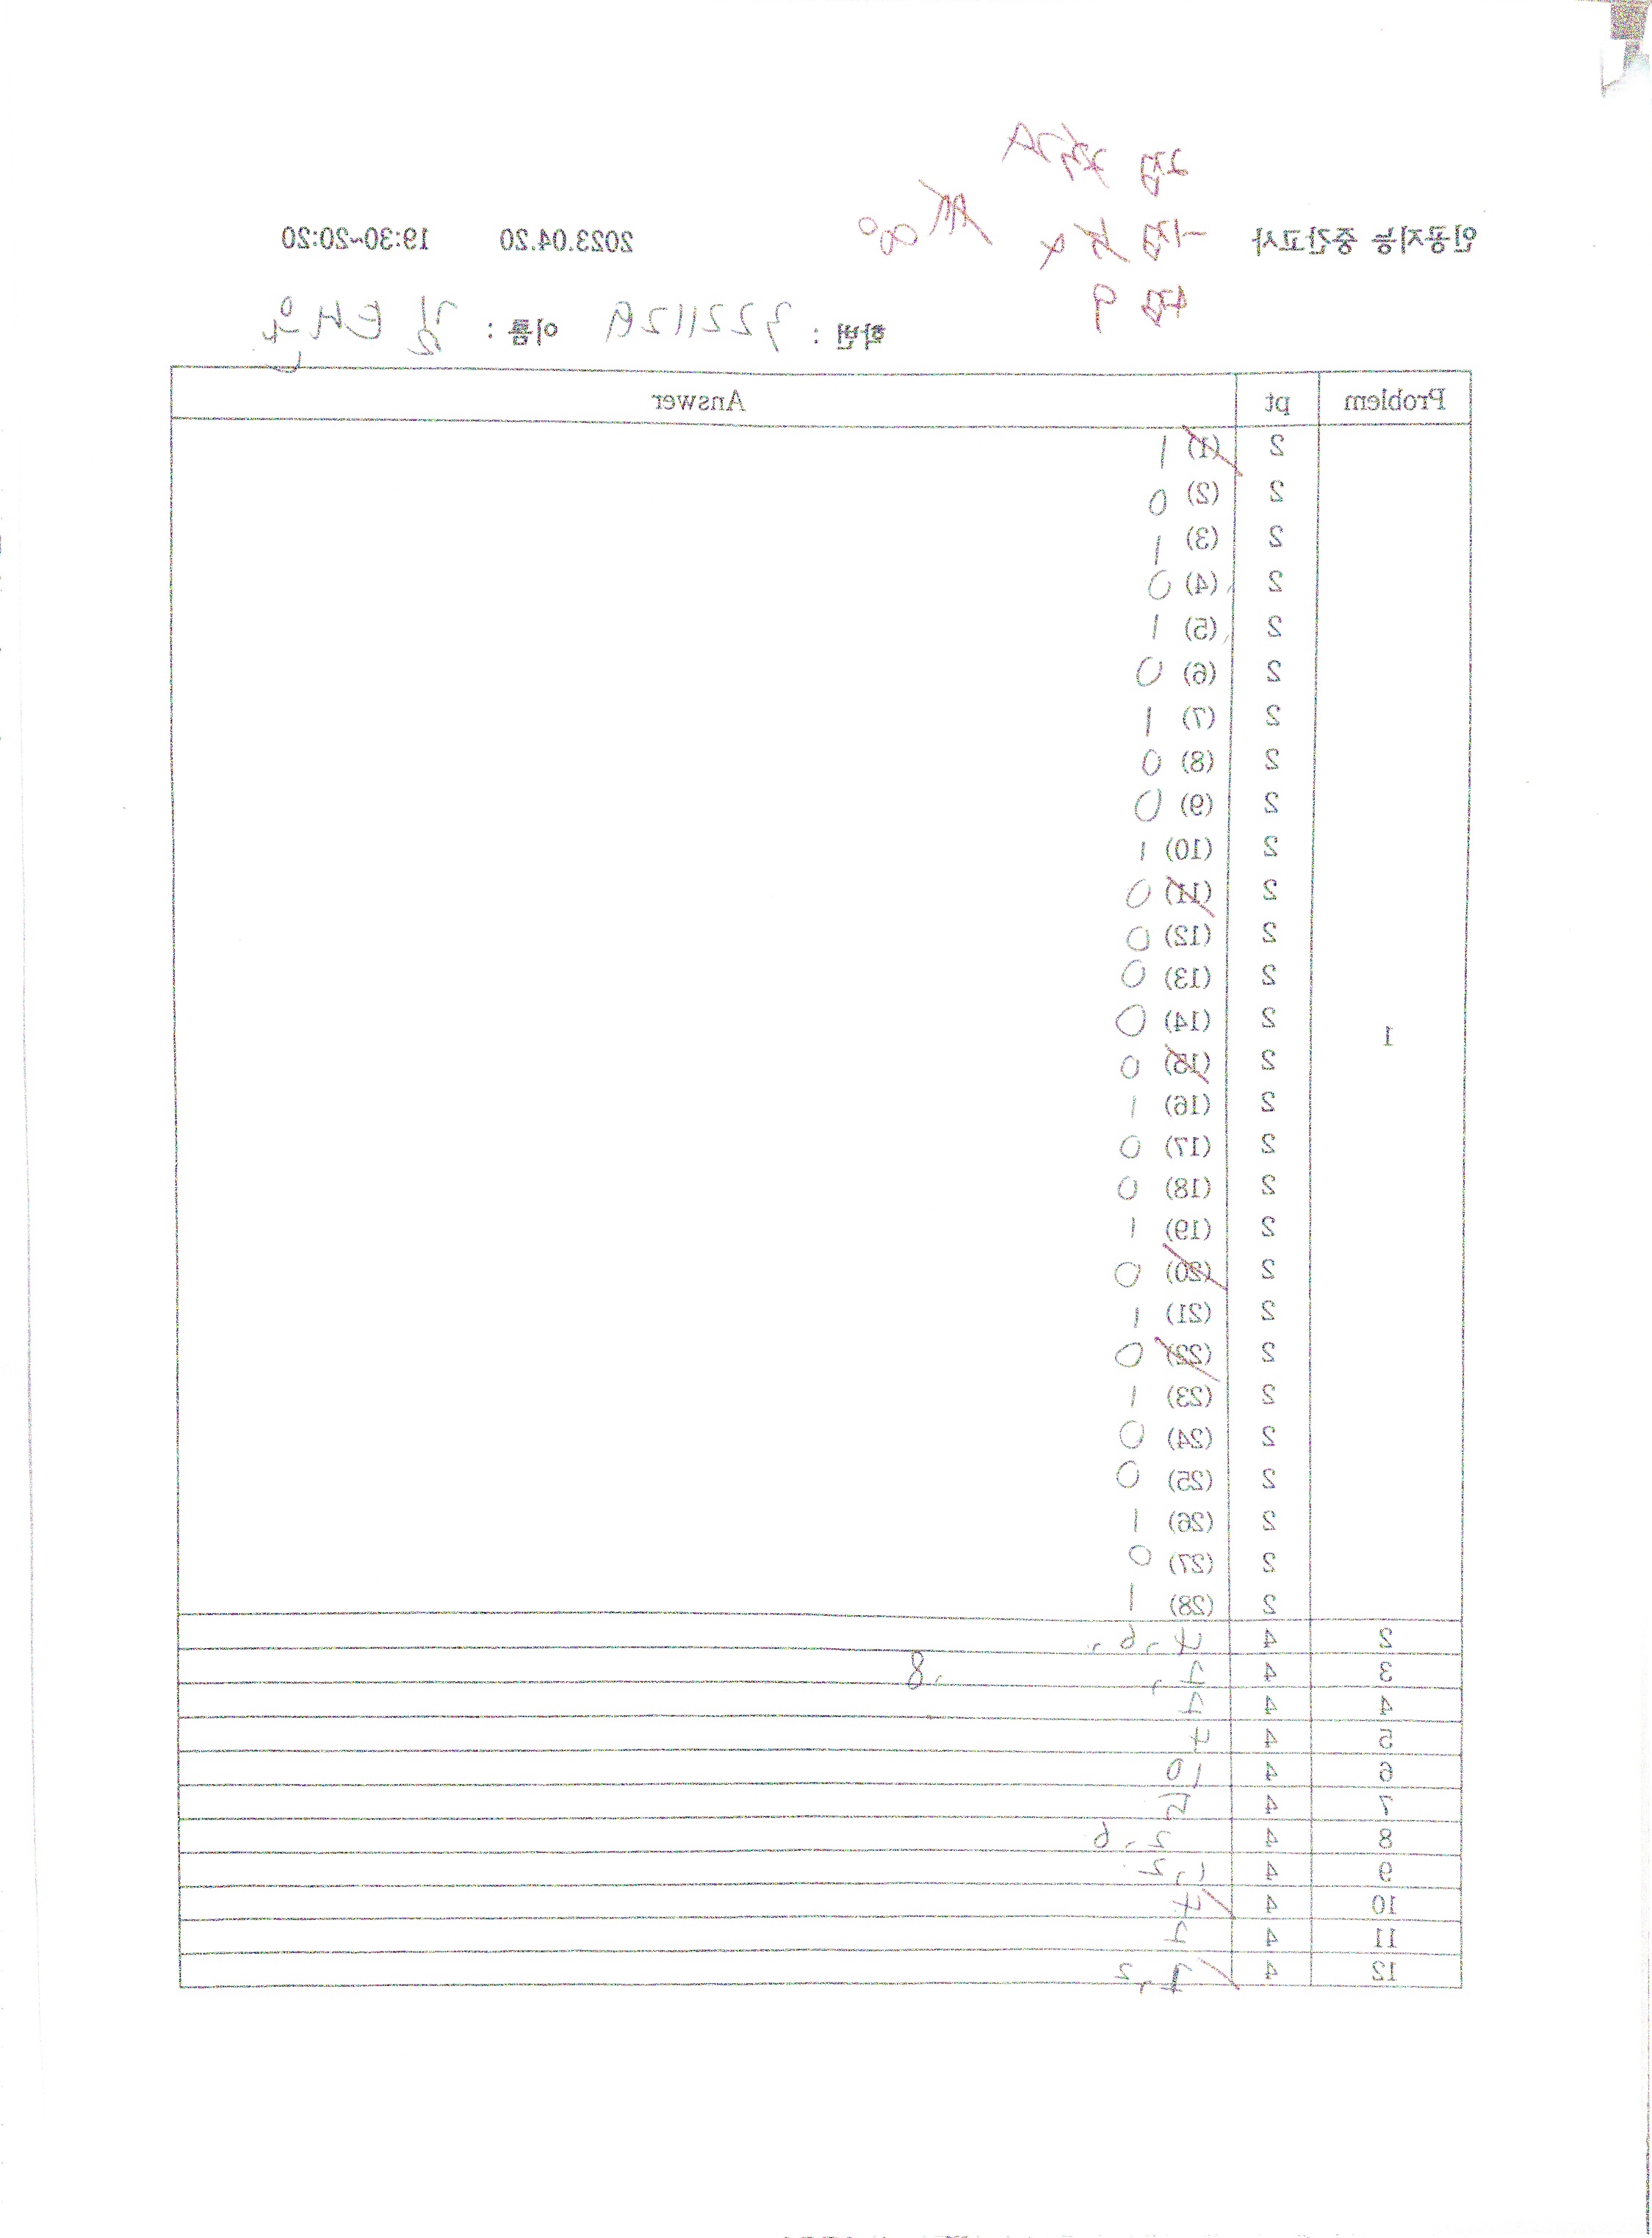 인공지능 중간고사 2023.04.20 19:30~20:20
2점
-1점 4
4점 9
학번 : 이름 : 김태윤
Problem pt Answer
1
2 (1) 1
2 (2) 0
2 (3) 1
2 (4) 0
2 (5) 1
2 (6) 0
2 (7) 1
2 (8) 0
2 (9) 0
2 (10) 1
2 (11) 0
2 (12) 0
2 (13) 0
2 (14) 0
2 (15) 0
2 (16) 1
2 (17) 0
2 (18) 0
2 (19) 1
2 (20) 0
2 (21) 1
2 (22) 0
2 (23) 1
2 (24) 0
2 (25) 0
2 (26) 1
2 (27) 0
2 (28) 1
2 4 4, 6,
3 4 , 8
4 4
5 4 4
6 4 10
7 4
8 4 2, 6
9 4 1, 2
10 4 4
11 4
12 4 , 2